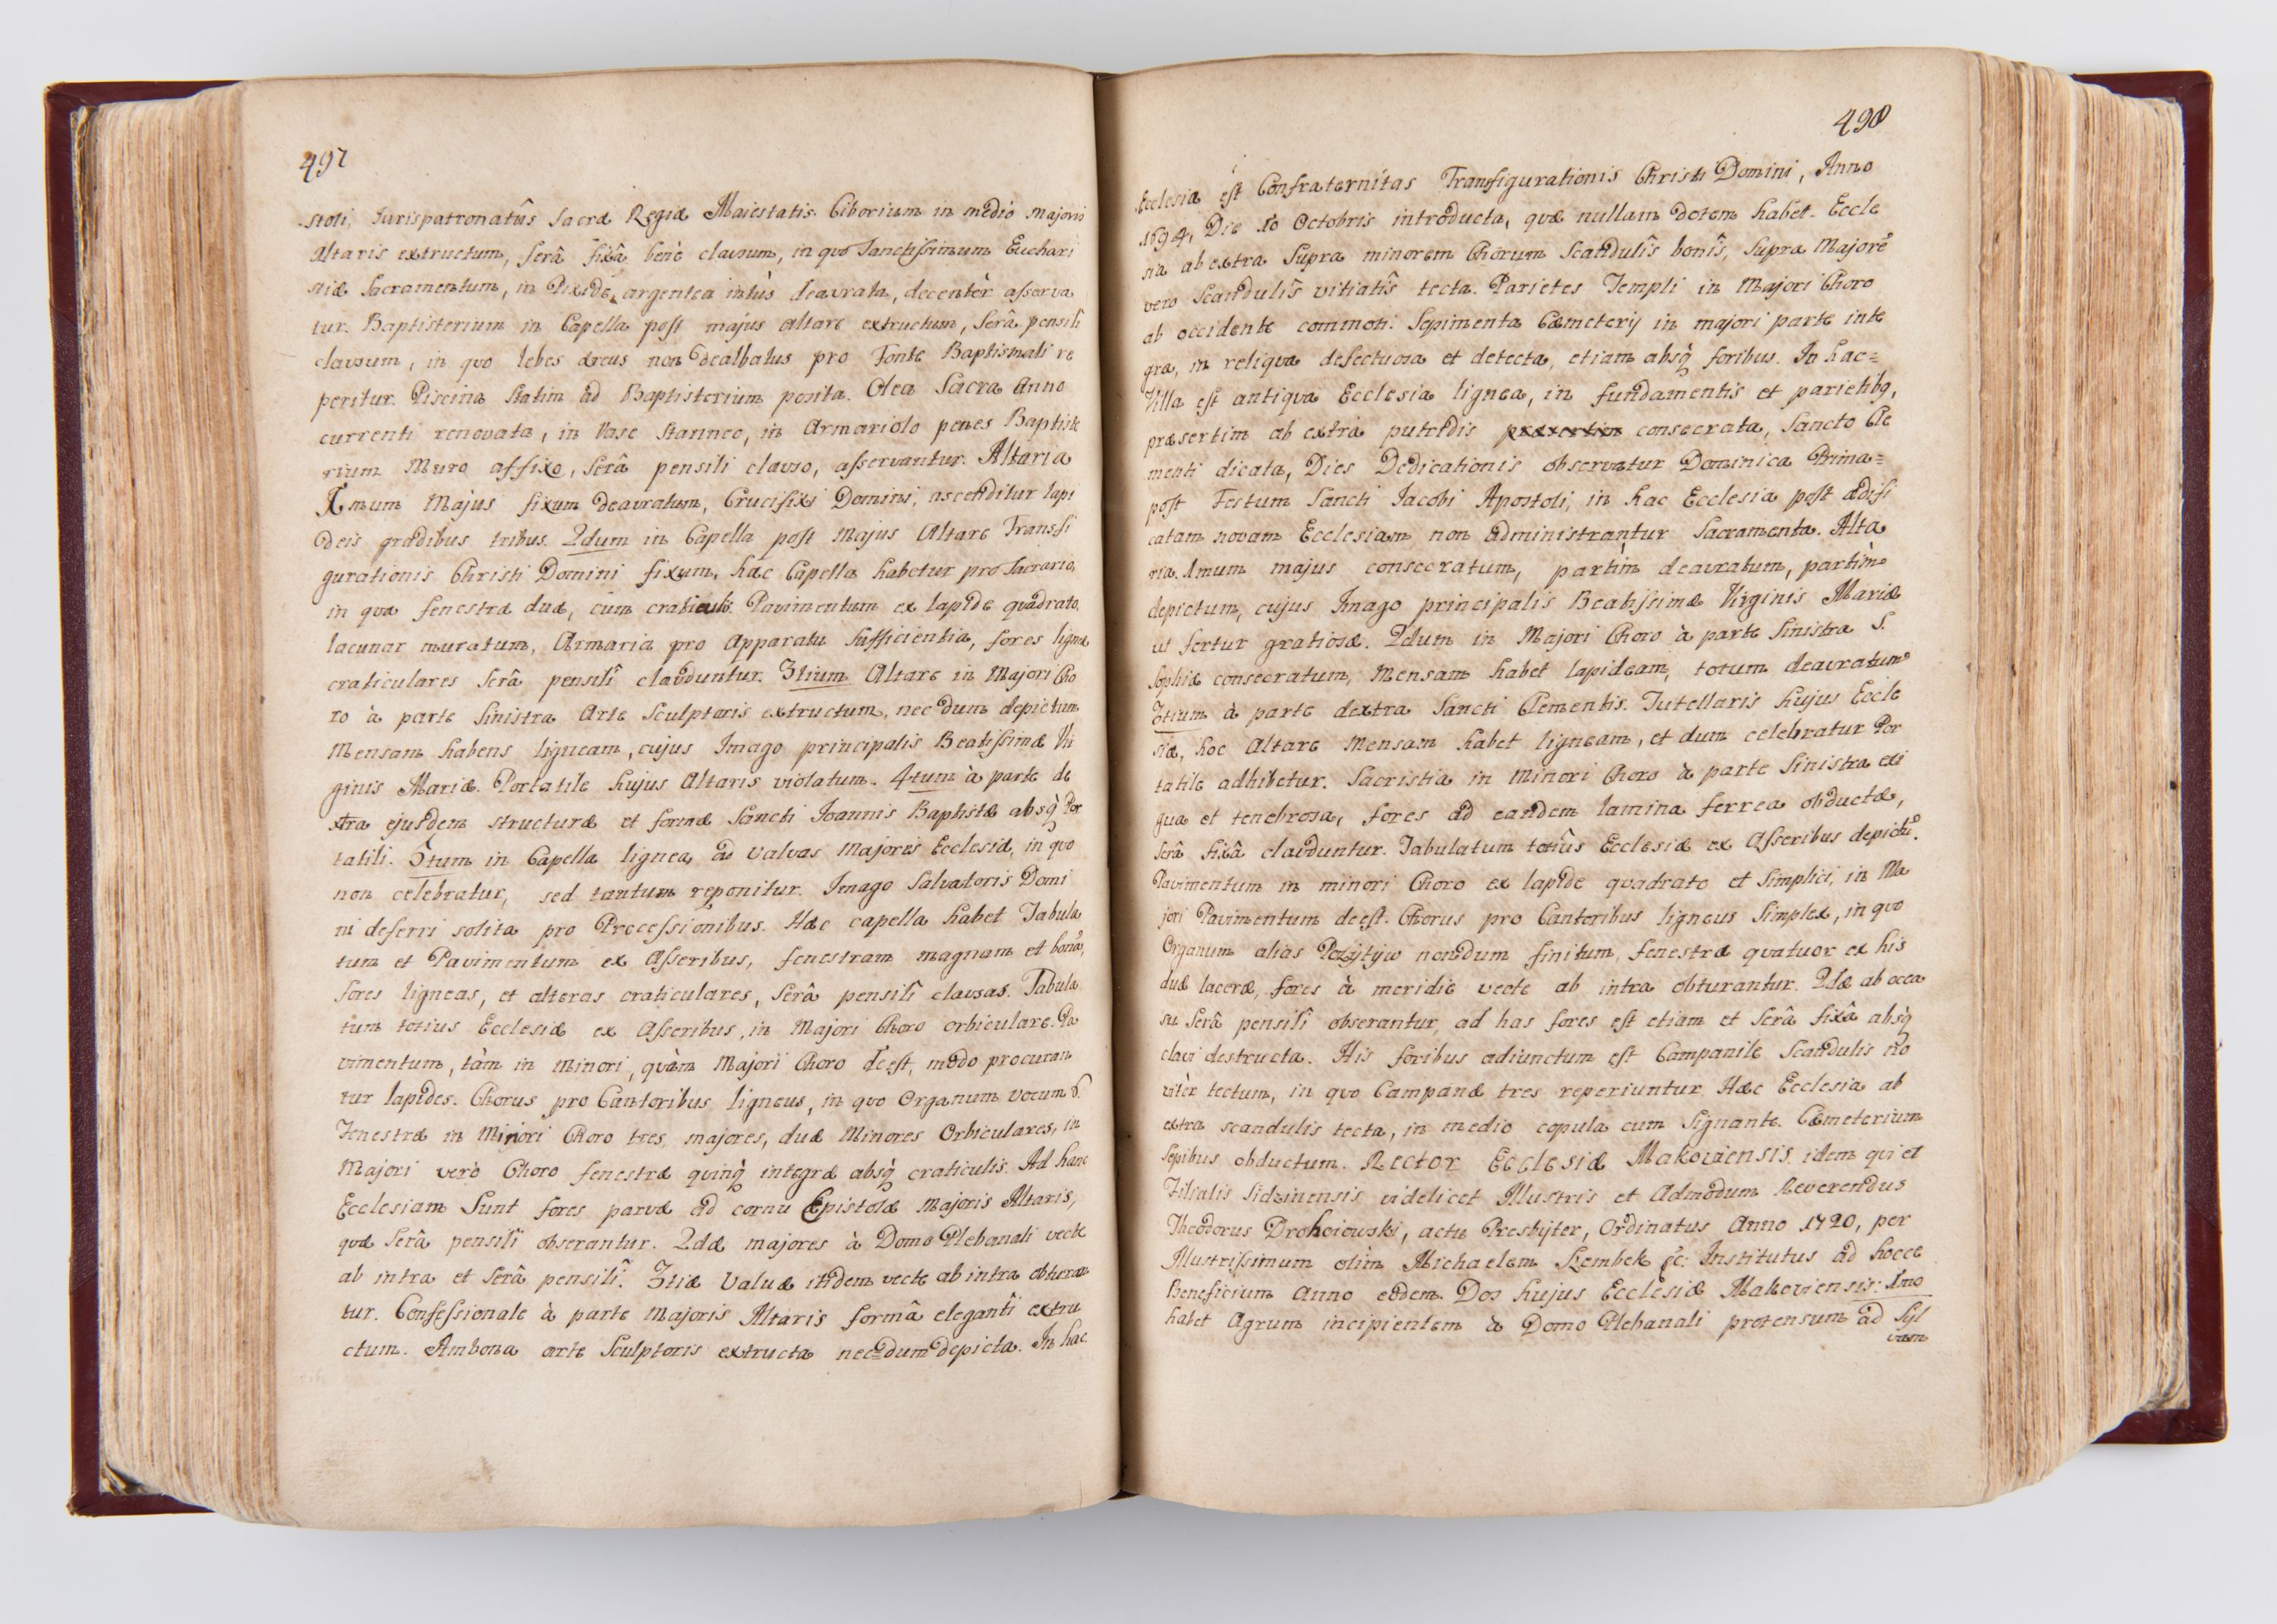 497
stoli, Jurispatronatûs Sacræ Regiæ Maiestatis. Ciborium in medio Majoris
Altaris extructum, Serâ fixâ benè clausum, in quo Sanctissimum Euchari
stiæ Sacramentum, in Pixide argentea intùs deaurata, decentèr asserva
tur. Baptisterium in Capella post majus altare extructum, Serâ pensili
clausum, in quo lebes æreus non dealbatus pro Fonte Baptismali re
peritur. Piscina statim ad Baptisterium posita. Olea Sacra Anno
currenti renovata, in Vase Stanneo, in Armariolo penes Baptiste
rium Muro affixo, Serâ pensili clauso, asservantur. Altaria
Imum Majus fixum deauratum, Crucifixi Domini, ascenditur lapi
deis gradibus tribus. 2dum in Capella post Majus Altare Transfi
gurationis Christi Domini fixum, hæc Capella habetur pro Sacrario,
in qua fenestræ duæ, cum craticulis. Pavimentum ex lapide quadrato,
lacunar muratum, Armaria pro Apparatu Sufficientia, fores ligneæ
craticulares Serâ pensilî clauduntur. 3tium Altare in Majori Cho
ro à parte Sinistra Arte Sculptoris extructum, nec dum depictum
Mensam habens ligneam, cujus Imago principalis Beatissimæ Vir
ginis Mariæ. Portatile hujus Altaris violatum. 4tum à parte de
xtra ejusdem structuræ et formæ Sancti Joannis Baptistæ absq́ Por
tatili. 5tum in Capella lignea ad valvas Majoris Ecclesiæ, in quo
non celebratur, sed tantum reponitur Imago Salvatoris Domi
ni deferri solita pro Processionibus. Hæc capella habet Tabula
tum et Pavimentum ex Asseribus, fenestram magnam et bonã,
fores ligneas, et alteras craticulares, Serâ pensilî clausas. Tabula
tum totius Ecclesiæ ex Asseribus, in Majori Choro orbiculare. Pa
vimentum, tàm in Minori, quàm Majori Choro deest, modo procuran
tur lapides. Chorus pro Cantoribus ligneus, in quo Organum vocum 6.
Fenestræ in Minori Choro tres, majores, duæ Minores Orbiculares, in
Majori verò Choro fenestræ quinq́ integræ absq́ craticulis. Ad hanc
Ecclesiam Sunt fores parvæ ad cornu Epistolæ Majoris Altaris,
quæ Serâ pensilî obserantur. 2dæ majores à Domo Plebanali vecte
ab intra et Serâ pensilî. 3tiæ Valvæ itidem vecte ab intra obturan
tur. Confessionale à parte Majoris Altaris formâ elegantî extru
ctum. Ambona arte Sculptoris extructa nec=dum depicta. In hac
498
Ecclesia est Confraternitas Transfigurationis Christi Domini, Anno
1694, Die 10 Octobris introducta, quæ nullam dotem habet. Eccle
sia ab extra Supra minorem Chorum Scandulîs bonîs, Supra Majorẽ
vero Scandulîs vitiatîs tecta. Parietes Templi in Majori Choro
ab occidente commoti. Sepimenta Cæmeterij in majori parte inte
gra, in reliqua defectuosa et detecta, etiam absq́ foribus. In hac=
Villa est antiqua Ecclesia lignea, in fundamentis et parietibq,
præsertim ab extra putridis præsertim consecrata, Sancto Cle
menti dicata, Dies Dedicationis observatur Dominica Prima=
post Festum Sancti Jacobi Apostoli, in hac Ecclesia post ædifi
catam novam Ecclesiam non administrantur Sacramenta. Alta
ria. Imum majus consecratum, partìm deauratum, partìm
depictum, cujus Imago principalis Beatissimæ Virginis Mariæ
ut fertur gratiosæ. 2dum in Majori Choro à parte Sinistra S.
Sophiæ consecratum, Mensam habet lapideam, totum deauratum
3tium à parte dextra Sancti Clementis. Tutellaris hujus Eccle
siæ, hoc Altare Mensam habet ligneam, et dum celebratur Por
tatile adhibetur. Sacristia in Minori Choro à parte Sinistra exi
gua et tenebrosa, fores ad eandem lamina ferrea obductæ,
Serâ fixâ clauduntur. Tabulatum totiûs Ecclesiæ ex Asseribus depictũ.
Pavimentum in minori Choro ex lapide quadrato et Simplici, in Ma
jori Pavimentum deest. Chorus pro Cantoribus ligneus Simplex, in quo
Organum alias Pozytyw nondum finitum, fenestræ quatuor ex his
duæ laceræ, fores à meridie vecte ab intra obturantur. 2dæ ab occa
su Serâ pensilî obserantur, ad has fores est etiam et Serâ fixâ absq́
clavi destructa. His foribus adiunctum est Campanile Scandulis no
vitèr tectum, in quo Campanæ tres reperiuntur. Hæc Ecclesia ab
extra scandulis tecta, in medio copula cum Signante. Cæmeterium
Sepibus obductum. Rector Ecclesiæ Makoviensis idem qui et
Filialis Sidzinensis videlicet Illustris et Admodum Reverendus
Theodorus Drohoiowski, actu Presbyter, Ordinatus Anno 1720, per
Illustrissimum olim Michaelem Szembek &c: Institutus ad hocce
Beneficium Anno eodem. Dos hujus Ecclesiæ Makoviensis: Imo
habet Agrum incipientem à Domo Plebanali protensum ad Syl
vam